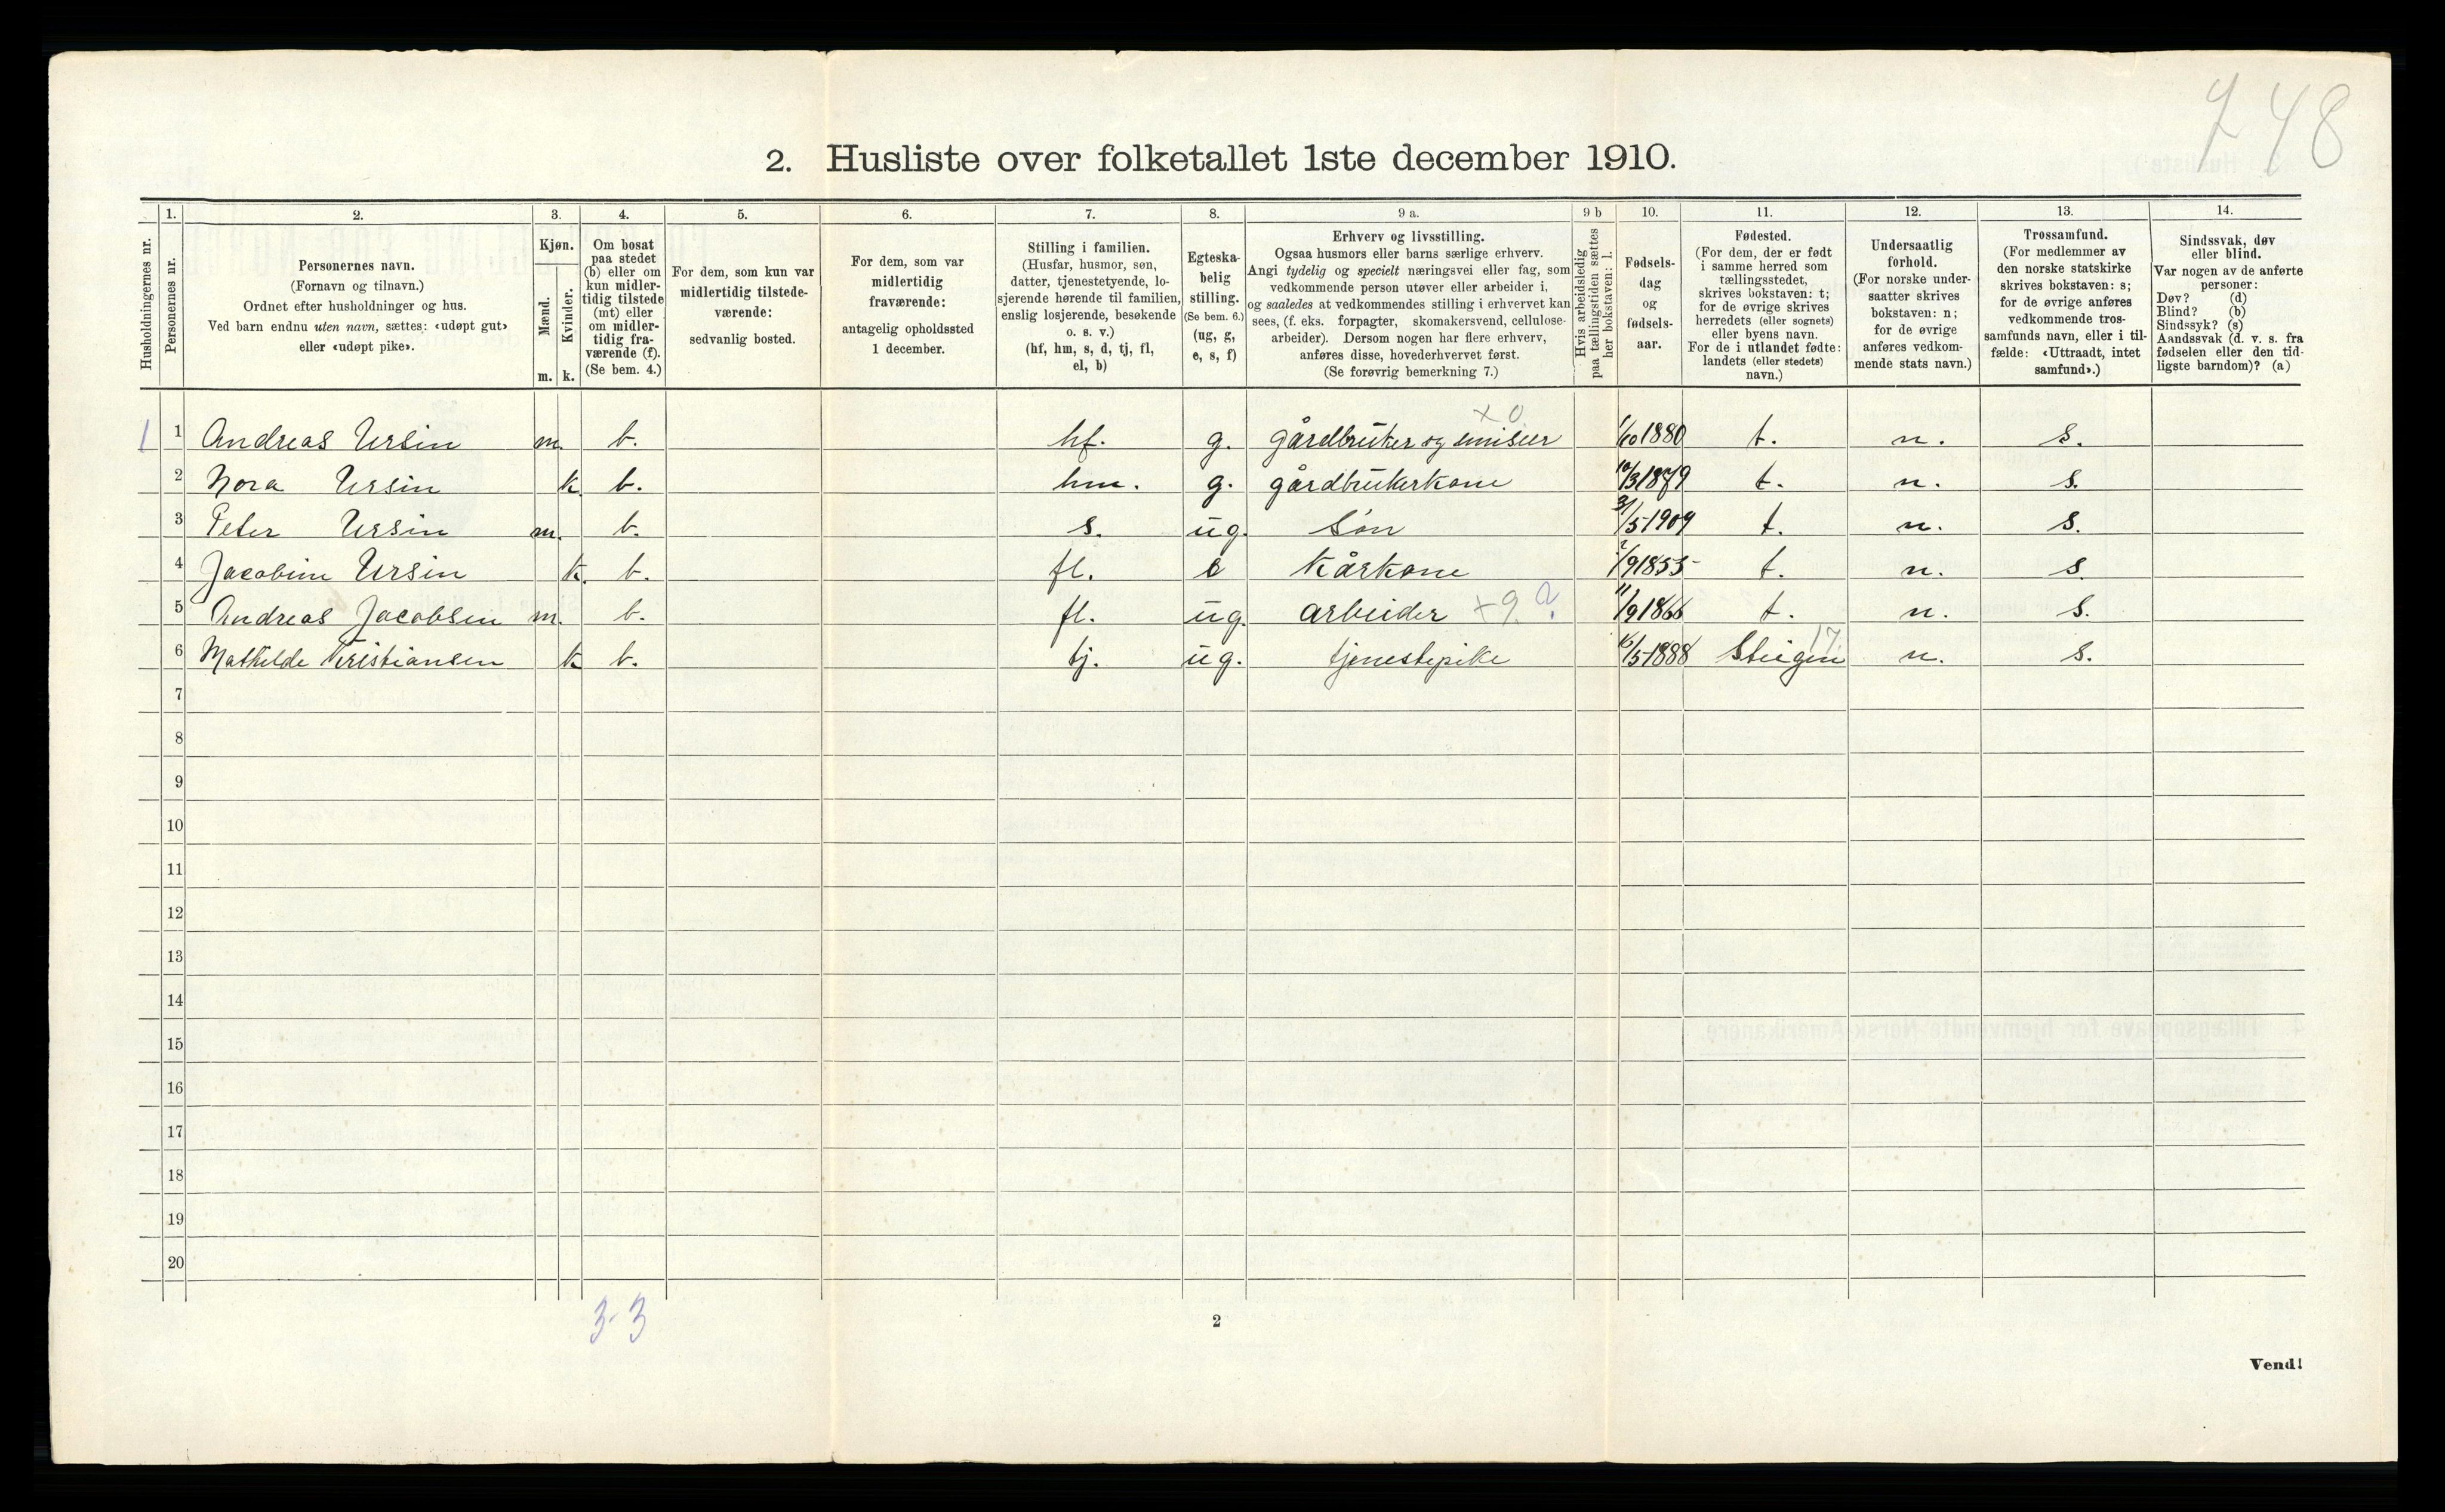 748
2. Husliste over folketallet 1ste december 1910.
Husholdningernes nr.
1.
Personernes nr.
2.
Personernes navn.
(Fornavn og tilnavn.)
Ordnet efter husholdninger og hus.
Ved barn endnu uten navn, sættes: «udøpt gut»
eller «udøpt pike».
3.
Kjøn.
Mænd.
Kvinder.
m. k.
4.
Om bosat
paa stedet
(b) eller om
kun midler-
tidig tilstede
(mt) eller
om midler-
tidig fra-
værende (f).
(Se bem. 4.)
5.
For dem, som kun var
midlertidig tilstede-
værende:
sedvanlig bosted.
6.
For dem, som var
midlertidig
fraværende:
antagelig opholdssted
1 december.
7.
Stilling i familien.
(Husfar, husmor, søn,
datter, tjenestetyende, lo-
sjerende hørende til familien,
enslig losjerende, besøkende
o. s. v.)
(hf, hm, s, d, tj, fl,
el, b)
8.
Egteska-
belig
stilling.
(Se bem. 6.)
(ug, g,
e, s, f)
9 a.
Erhverv og livsstilling.
Ogsaa husmors eller barns særlige erhverv.
Angi tydelig og specielt næringsvei eller fag, som
vedkommende person utøver eller arbeider i,
og saaledes at vedkommendes stilling i erhvervet kan
sees, (f. eks. forpagter, skomakersvend, cellulose-
arbeider). Dersom nogen har flere erhverv,
anføres disse, hovederhvervet først.
(Se forøvrig bemerkning 7.)
9 b
Hvis arbeidsledig
paa tællingstiden sættes
her bokstaven: l.
10.
Fødsels-
dag
og
fødsels-
aar.
11.
Fødested.
(For dem, der er født
i samme herred som
tællingsstedet,
skrives bokstaven: t;
for de øvrige skrives
herredets (eller sognets)
eller byens navn.
For de i utlandet fødte:
landets (eller stedets)
navn.)
12.
Undersaatlig
forhold.
(For norske under-
saatter skrives
bokstaven: n;
for de øvrige
anføres vedkom-
mende stats navn.)
13.
Trossamfund.
(For medlemmer av
den norske statskirke
skrives bokstaven: s;
for de øvrige anføres
vedkommende tros-
samfunds navn, eller i til-
fælde: «Uttraadt, intet
samfund».)
14.
Sindssvak, døv
eller blind.
Var nogen av de anførte
personer:
Døv? (d)
Blind? (b)
Sindssyk? (s)
Aandssvak (d. v. s. fra
fødselen eller den tid-
ligste barndom)? (a)
x 0
1 1 Andreas Ursin m. b. hf. g. gårdbruker og 1/10 1880 t. n. s.
2 Nora Ursin k b. hm. g. gårdbrukerkone 10/3 1879 t. n. s.
3 Peter Ursin m. b. s. ug. Søn /5 1909 t. n. s.
4 Jacobine Ursin k. b. fl. e kårkone /9 1855 t. n. s.
5 Andreas Jacobsen m. b. fl. ug. arbeider x 9. ? 11/9 1866 t. n. s.
6 Mathilde Kristiansen k b. tj. ug. tjenestepike /5 1888 Steigen 17 n. s.
7
8
9
10
11
12
13
14
15
16
17
18
19
20
3-3
2
Vend!